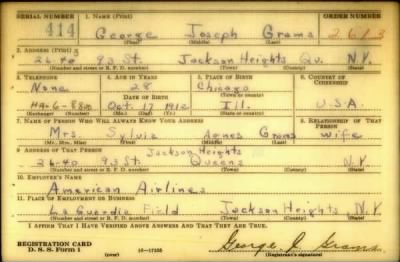 SERIAL NUMBER 1. NAME (Print) ORDER NUMBER
414 George Joseph Grams 2613
(First) (Middle) (Last)
2. ADDRESS (Print)
26-40 93 St. Jackson Heights Qu. N.Y.
(Number and street or R. F. D. number) (Town) (County) (State)
3. TELEPHONE 4. AGE IN YEARS 5. PLACE OF BIRTH 6. COUNTRY OF CITIZENSHIP
None 28 Chicago
DATE OF BIRTH (Town or county)
Oct. 17 1912 Ill. U.S.A.
(Exchange) (Number) (Mo.) (Day) (Yr.) (State or country)
7. NAME OF PERSON WHO WILL ALWAYS KNOW YOUR ADDRESS 8. RELATIONSHIP OF THAT PERSON
Mrs. Sylvia Agnes Grams Wife
(Mr., Mrs., Miss) (First) (Middle) (Last)
9. ADDRESS OF THAT PERSON
Jackson Heights
26-40 93 St. Queens N.Y.
(Number and street or R. F. D. number) (Town) (County) (State)
10. EMPLOYER'S NAME
American Airlines
11. PLACE OF EMPLOYMENT OR BUSINESS
La Guardia Field Jackson Heights, N.Y
(Number and street or R. F. D. number) (Town) (County) (State)
I AFFIRM THAT I HAVE VERIFIED ABOVE ANSWERS AND THAT THEY ARE TRUE.
REGISTRATION CARD
D. S. S. Form 1 (over) 16-17105 George J. Grams
(Registrant's signature)